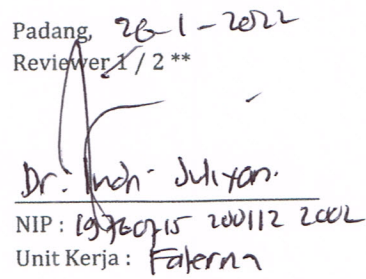 Padang, 26-1-2022
Reviewer 1 / 2 **
Dr. Indri Juliyan.
NIP : 19760715 200112 2002
Unit Kerja : Faterna